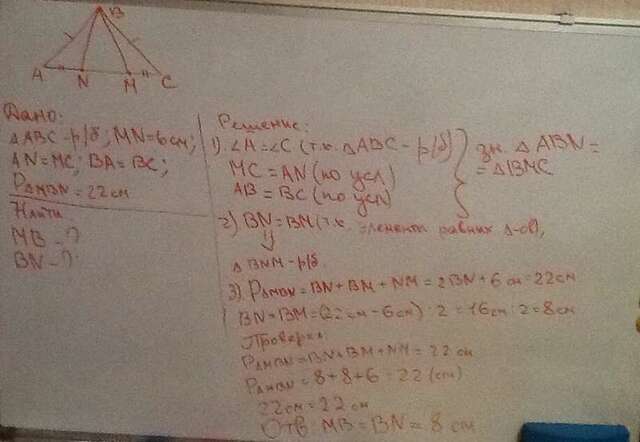 B
A N M C
Дано:
△ABC - р/б; MN = 6 см;
AN = MC; BA = BC;
P△MBN = 22 см
Найти
MB - ?
BN - ?
Решение:
1). ∠A = ∠C (т.к. △ABC - р/б)
MC = AN (по усл)
AB = BC (по усл)
} зн. △ABN =
= △BMC
2) BN = BM (т.к. элементы равных △-ов),
⇓
△BNM - р/б.
3). P△MBN = BN + BM + NM = 2BN + 6 см = 22 см
BN = BM = (22 см - 6 см) : 2 = 16 см : 2 = 8 см
Проверка:
P△MBN = BN + BM + NM = 22 см
P△MBN = 8 + 8 + 6 = 22 (см)
22 см = 22 см
Отв: MB = BN = 8 см